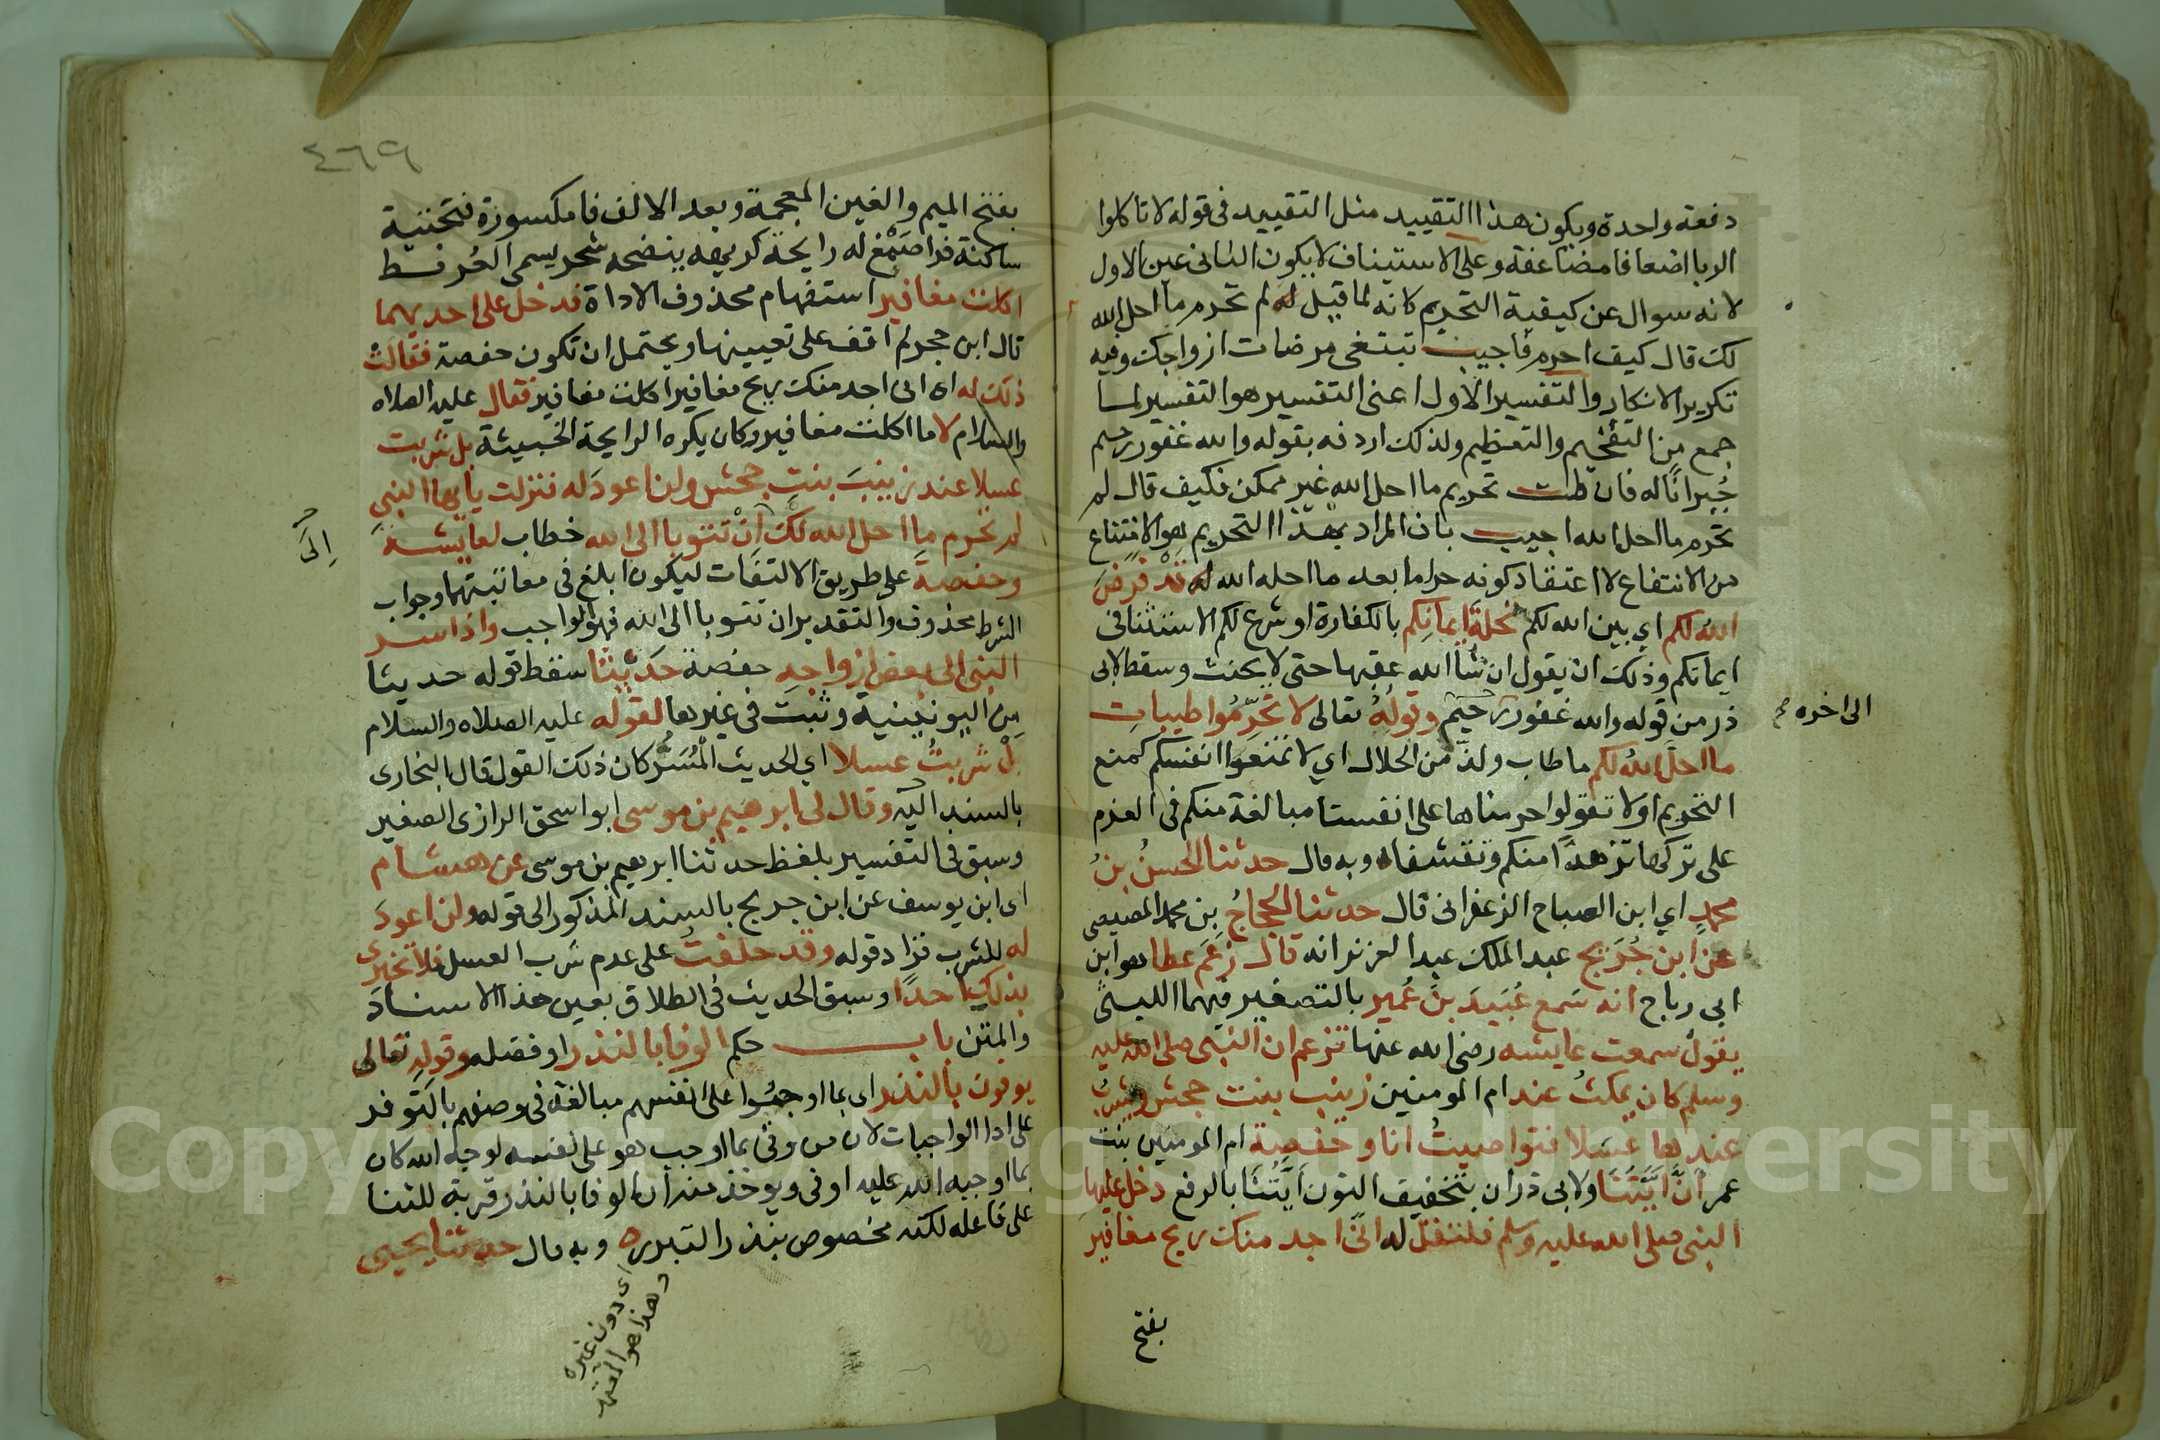 دفعة واحدة ويكون هذا التقييد مثل التقييد فى قوله لا تاكلوا
الربا اضعافا مضاعفة وعلى الاستيناف لا يكون الثانى عين الاول
لانه سوال عن كيفية التحريم كانه لما قيل له لم تحرم ما احل الله
لك قال كيف احرم فاجيب تبتغى مرضات ازواجك وفيه
تكرير الانكار والتفسير الاول اعنى التفسير هو التفسير لما
جمع من التفخيم والتعظيم ولذلك اردفه بقوله والله غفور رحيم
جبرانا له فان قلت تحريم ما احل الله غير ممكن فكيف قال لم
تحرم ما احل الله اجيب بان المراد بهذا التحريم هو الامتناع
من الانتفاع لا اعتقاد كونه حراما بعد ما احله الله له قد فرض
الله لكم اي بين الله لكم تحلة ايمانكم بالكفارة او شرع لكم الاستثنا فى
ايمانكم وذلك ان يقول ان شا الله عقبها حتى لا يحنث وسقط لابى
ذر من قوله والله غفور رحيم وقوله تعالى لا تحرموا طيبات
الى اخره صح
ما احل الله لكم ما طاب ولذ من الحلال اي لا تمنعوا انفسكم كمنع
التحريم او لا تقولوا حرمناها على انفسنا مبالغة منكم فى العزم
على تركها تزهدا منكم وتقشفا وبه قال حدثنا الحسن بن
محمد اي ابن الصباح الزعفرانى قال حدثنا الحجاج بن محمد المصيصى
عن ابن جريج عبد الملك عبد العزيز انه قال زعم عطا هو ابن
ابى رباح انه سمع عبيد بن عمير بالتصغير فيهما الليثى
يقول سمعت عايشه رضى الله عنها تزعم ان النبى صلى الله عليه
وسلم كان يمكث عند ام المومنين زينب بنت جحش ويشرب
عندها عسلا فتواصيت انا وحفصة ام المومنين بنت
عمر ان ايتنا ولابى ذر ان بتخفيف النون ايتنا بالرفع دخل عليها
النبى صلى الله عليه وسلم فلتقل له انى اجد منك ريح مغافير
بفتح
٤٦٩
بفتح الميم والغين المعجمة وبعد الالف فا مكسورة فتحتية
ساكنة فرا صمغ له رايحة كريهه ينضحه شجر يسمى العرفط
اكلت مغافير استفهام محذوف الاداة فدخل على احديهما
قال ابن حجر لم اقف على تعيينها ويحتمل ان تكون حفصة فقالت
ذلك له اى انى اجد منك ريح مغافير اكلت مغافير فقال عليه الصلاه
والسلام لا ما اكلت مغافير وكان يكره الرايحة الخبيثة بل شربت
عسلا عند زينب بنت جحش ولن اعود له فنزلت يا ايها النبى
لم تحرم ما احل الله لك ان تتوبا الى الله خطاب لعايشة
الى
وحفصة على طريق الالتفات ليكون ابلغ فى معاتبتهما وجواب
الشرط محذوف والتقدير ان تتوبا الى الله فهو الواجب واذ اسر
النبى الى بعض ازواجه حفصة حديثا سقط قوله حديثا
من اليونينية وثبت فى غيرها لقوله عليه الصلاه والسلام
بل شربت عسلا اي الحديث المسر كان ذلك القول قال البخارى
بالسند اليه وقال لى ابرهيم بن موسى ابو اسحق الرازى الصغير
وسبق فى التفسير بلفظ حدثنا ابرهيم بن موسى عن هشام
اى ابن يوسف عن ابن جريج بالسند المذكور الى قوله ولن اعود
له للشرب فزاد قوله وقد حلفت على عدم شرب العسل فلا تخبرى
بذلك احدا وسبق الحديث فى الطلاق بعين هذا الاسناد
والمتن باب حكم الوفا بالنذر او فضله وقوله تعالى
يوفون بالنذر اى بما اوجبوا على انفسهم مبالغة فى وصفهم بالتوفر
على ادا الواجبات لان من وفى بما اوجب هو على نفسه لوجه الله كان
بما اوجبه الله عليه اوفى ويوخذ منه ان الوفا بالنذر قربة للثنا
على فاعله لكنه مخصوص بنذر التبرر وبه قال حدثنا يحيى
اى دون غيره
وهذا هو المعتمد
Copyright © King Saud University